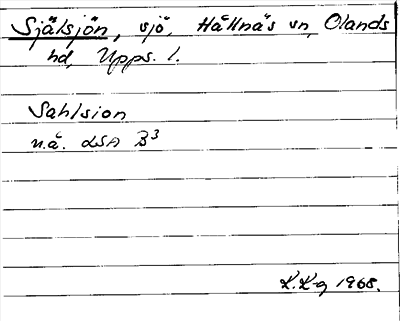 Själsjön, sjö, Hållnäs sn, Olands
hd, Upps. l.
Sahlsion
n.å. LSA B3
K.K-g 1968.